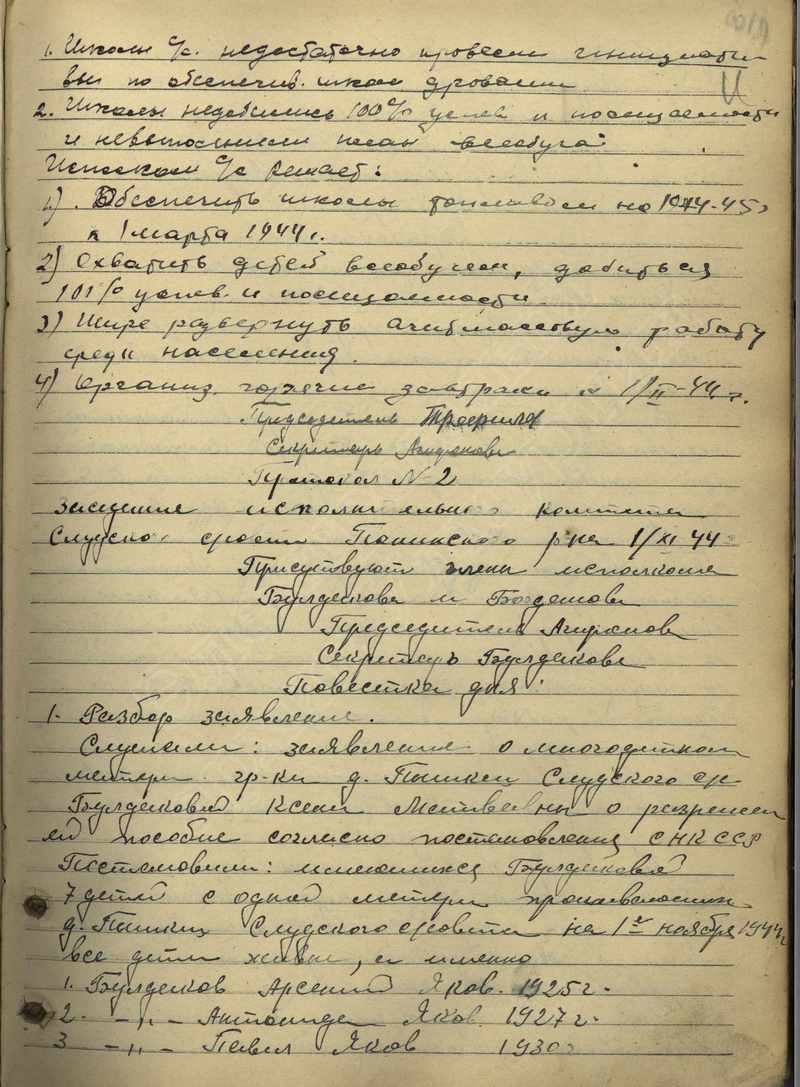 1. Школы с/с. недостаточно провели инициати
вы по обеспечив. школ дровами
2. Школы недобились 100% успев и посещаемости
и невыполнили план всеобуча
Исполком с/с решает:
1). Обеспечить школы топливом на 1944-45г
к 1 марта 1944 г.
2) Охватить детей всеобучем, добиться
101% успев. и посещаемости
3) Шире развернуть работу
среди населения.
4) Организ. горячие завтраки к 1/II-44 г.
Председатель
Секретарь
Протокол N 2
заседание исполнительного комитета
Слудского с/совета р-на 1/XI 44 г
Присутствуют члены исполкома
Булдакова и
Председатель
Секретарь Булдакова
Повестка дня:
1. Разбор заявление.
Слушали: заявление о многодетной
матери гр-ки д. Слудского с/с
Булдаковой Ксении Матвеевны о разрешен
ей пособие согласно постановления СНК СССР
Постановили: имеющихся Булдаковой
7 детей с одной матери
д. Слудского с/совета на 1е ноября 1944 г
все дети живы, а именно
1. Булдаков Арсений Яков. 1925 г.
2. -"- Яков. 1927 г.
3 -"- Павел Яков 1930 г